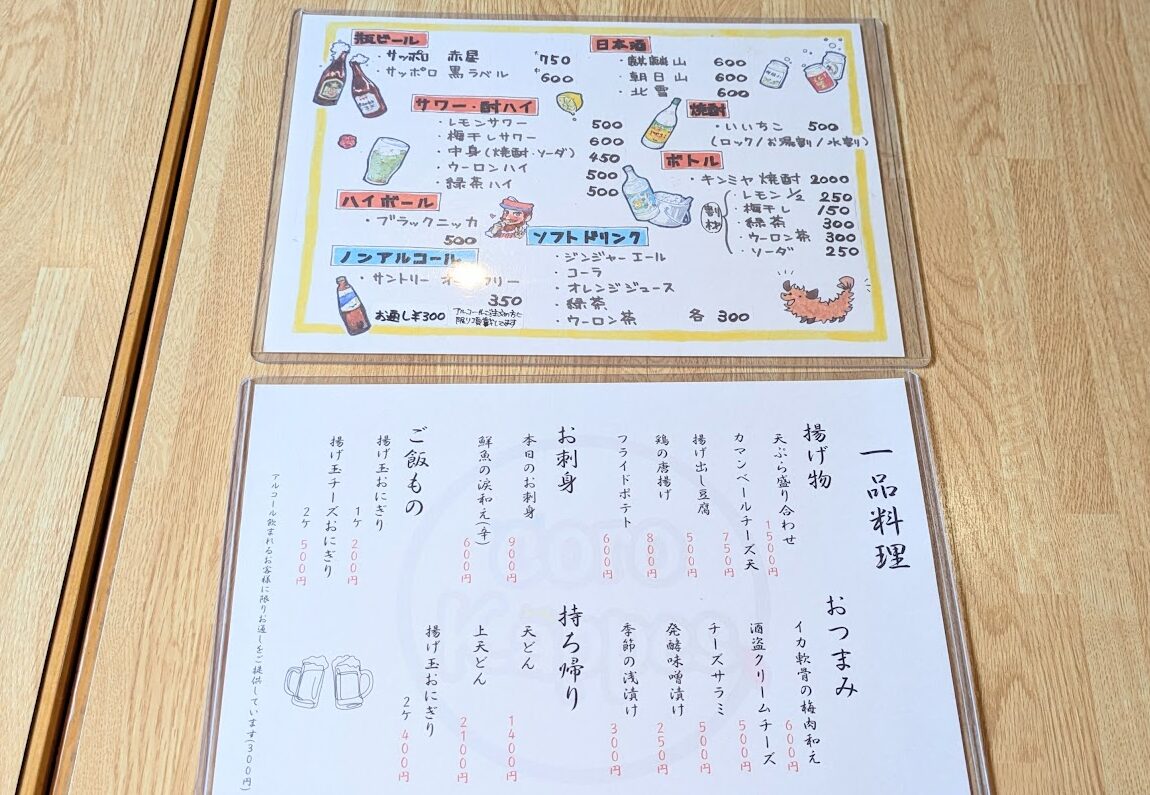 瓶ビール
・サッポロ 赤星 ¥750
・サッポロ 黒ラベル ¥600
サワー・酎ハイ
・レモンサワー 500
・梅干しサワー 600
・中身(焼酎・ソーダ) 450
・ウーロンハイ 500
・緑茶ハイ 500
ハイボール
・ブラックニッカ
500
ノンアルコール
・サントリー オ フリー
350
お通し¥300 アルコールご注文の方に
限り頂戴してます
日本酒
・麒麟山 600
・朝日山 600
・北雪 600
焼酎
・いいちこ 500
(ロック/お湯割/水割)
ボトル
・キンミヤ焼酎 2000
割材
・レモン1/2 250
・梅干し 150
・緑茶 300
・ウーロン茶 300
・ソーダ 250
ソフトドリンク
・ジンジャーエール
・コーラ
・オレンジジュース
・緑茶
・ウーロン茶 各 300
一品料理
揚げ物
天ぷら盛り合わせ 1500円
カマンベールチーズ天 750円
揚げ出し豆腐 500円
鶏の唐揚げ 800円
フライドポテト 600円
お刺身
本日のお刺身 900円
鮮魚の涙和え(辛) 600円
ご飯もの
揚げ玉おにぎり 1ケ 200円
揚げ玉チーズおにぎり 2ケ 500円
おつまみ
イカ軟骨の梅肉和え 600円
酒盗クリームチーズ 500円
チーズサラミ 500円
発酵味噌漬け 250円
季節の浅漬け 300円
持ち帰り
天どん 1400円
上天どん 2100円
揚げ玉おにぎり 2ケ 400円
アルコール飲まれるお客様に限りお通しをご提供しています(300円)
coro